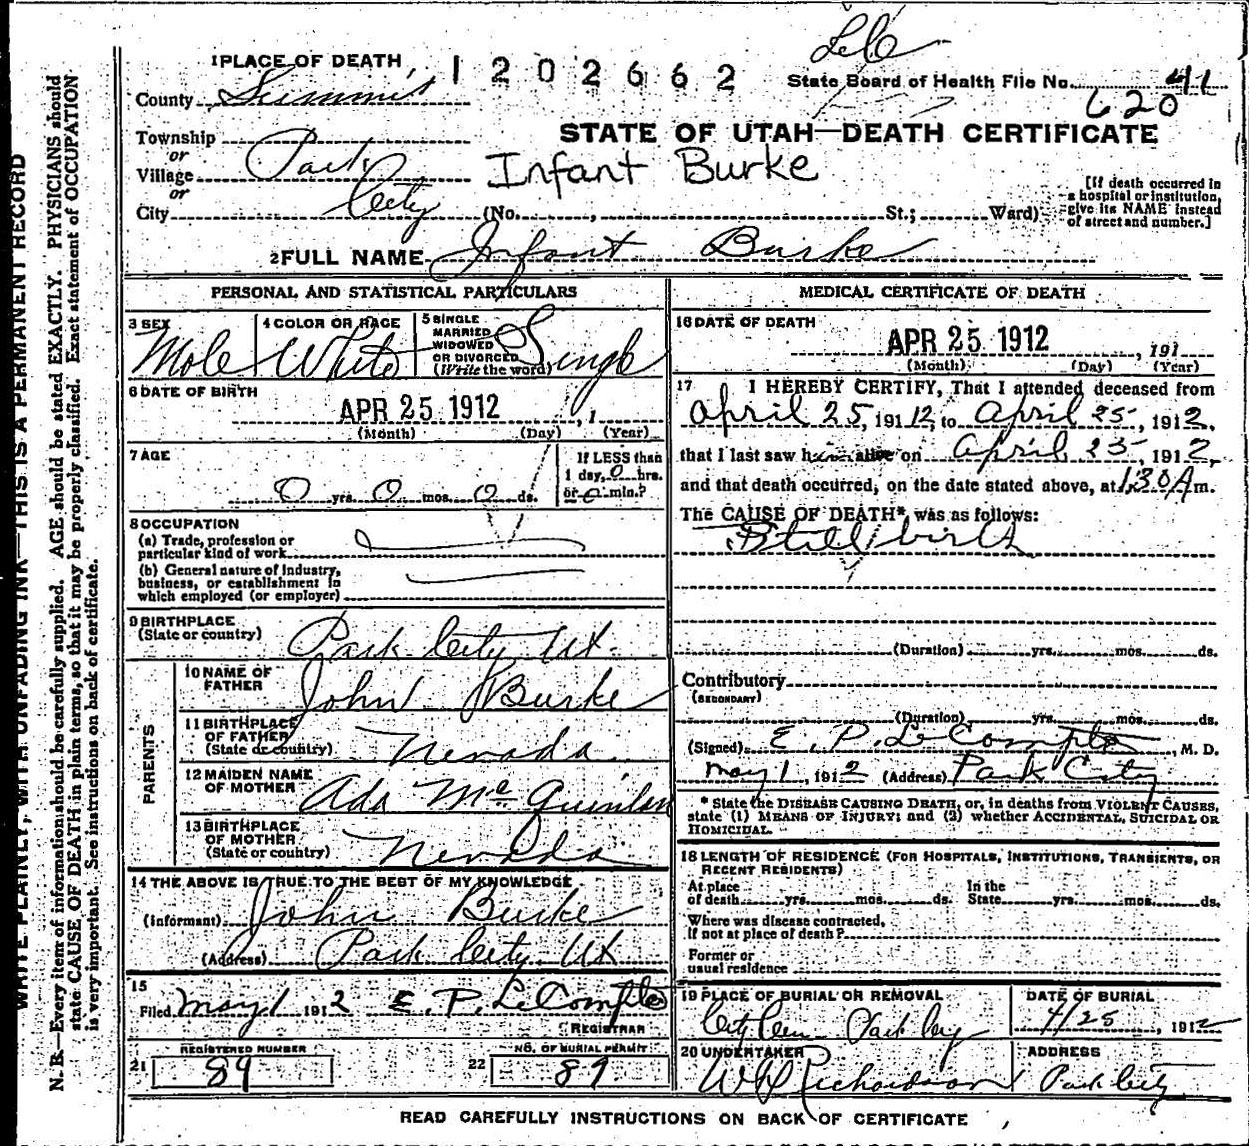 LeC
1 PLACE OF DEATH, 1 2 0 2 6 6 2 State Board of Health File No. 41
County Summit 620
STATE OF UTAH—DEATH CERTIFICATE
Township
or
Village Park Infant Burke
or
City City (No. , St.; Ward)
[If death occurred in
a hospital or institution,
give its NAME instead
of street and number.]
2 FULL NAME Infant Burke
PERSONAL AND STATISTICAL PARTICULARS
3 SEX Male
4 COLOR OR RACE White
5 SINGLE
MARRIED
WIDOWED
OR DIVORCED
(Write the word) Single
6 DATE OF BIRTH
APR 25 1912 , 1
(Month) (Day) (Year)
7 AGE
0 yrs. 0 mos. 0 ds.
If LESS than
1 day, 0 hrs.
or 0 min.?
8 OCCUPATION
(a) Trade, profession or
particular kind of work
(b) General nature of industry,
business, or establishment in
which employed (or employer)
9 BIRTHPLACE
(State or country) Park City Ut.
PARENTS
10 NAME OF
FATHER John Burke
11 BIRTHPLACE
OF FATHER
(State or country) Nevada
12 MAIDEN NAME
OF MOTHER Ada McQuinlan
13 BIRTHPLACE
OF MOTHER
(State or country) Nevada
14 THE ABOVE IS TRUE TO THE BEST OF MY KNOWLEDGE
(Informant) John Burke
(Address) Park City Ut
15
Filed May 1 1912 E. P. LeCompte
REGISTRAR
REGISTERED NUMBER
21 89
NO. OF BURIAL PERMIT
22 89
MEDICAL CERTIFICATE OF DEATH
16 DATE OF DEATH
APR 25 1912 , 191
(Month) (Day) (Year)
17 I HEREBY CERTIFY, That I attended deceased from
April 25, 1912, to April 25, 1912,
that I last saw him alive on April 25, 1912,
and that death occurred, on the date stated above, at 1:30 A m.
The CAUSE OF DEATH* was as follows:
Still birth
(Duration) yrs. mos. ds.
Contributory
(SECONDARY)
(Duration) yrs. mos. ds.
(Signed) E. P. LeCompte, M. D.
May 1, 1912 (Address) Park City
* State the DISEASE CAUSING DEATH, or, in deaths from VIOLENT CAUSES,
state (1) MEANS OF INJURY; and (2) whether ACCIDENTAL, SUICIDAL OR
HOMICIDAL.
18 LENGTH OF RESIDENCE (FOR HOSPITALS, INSTITUTIONS, TRANSIENTS, OR
RECENT RESIDENTS)
At place
of death yrs. mos. ds.
In the
State yrs. mos. ds.
Where was disease contracted,
If not at place of death?
Former or
usual residence
19 PLACE OF BURIAL OR REMOVAL
City Cem Park City
DATE OF BURIAL
4/25, 1912
20 UNDERTAKER
W Richardson
ADDRESS
Park City
READ CAREFULLY INSTRUCTIONS ON BACK OF CERTIFICATE
WRITE PLAINLY, WITH UNFADING INK—THIS IS A PERMANENT RECORD
N. B.—Every item of information should be carefully supplied. AGE should be stated EXACTLY. PHYSICIANS should
state CAUSE OF DEATH in plain terms, so that it may be properly classified. Exact statement of OCCUPATION
is very important. See instructions on back of certificate.